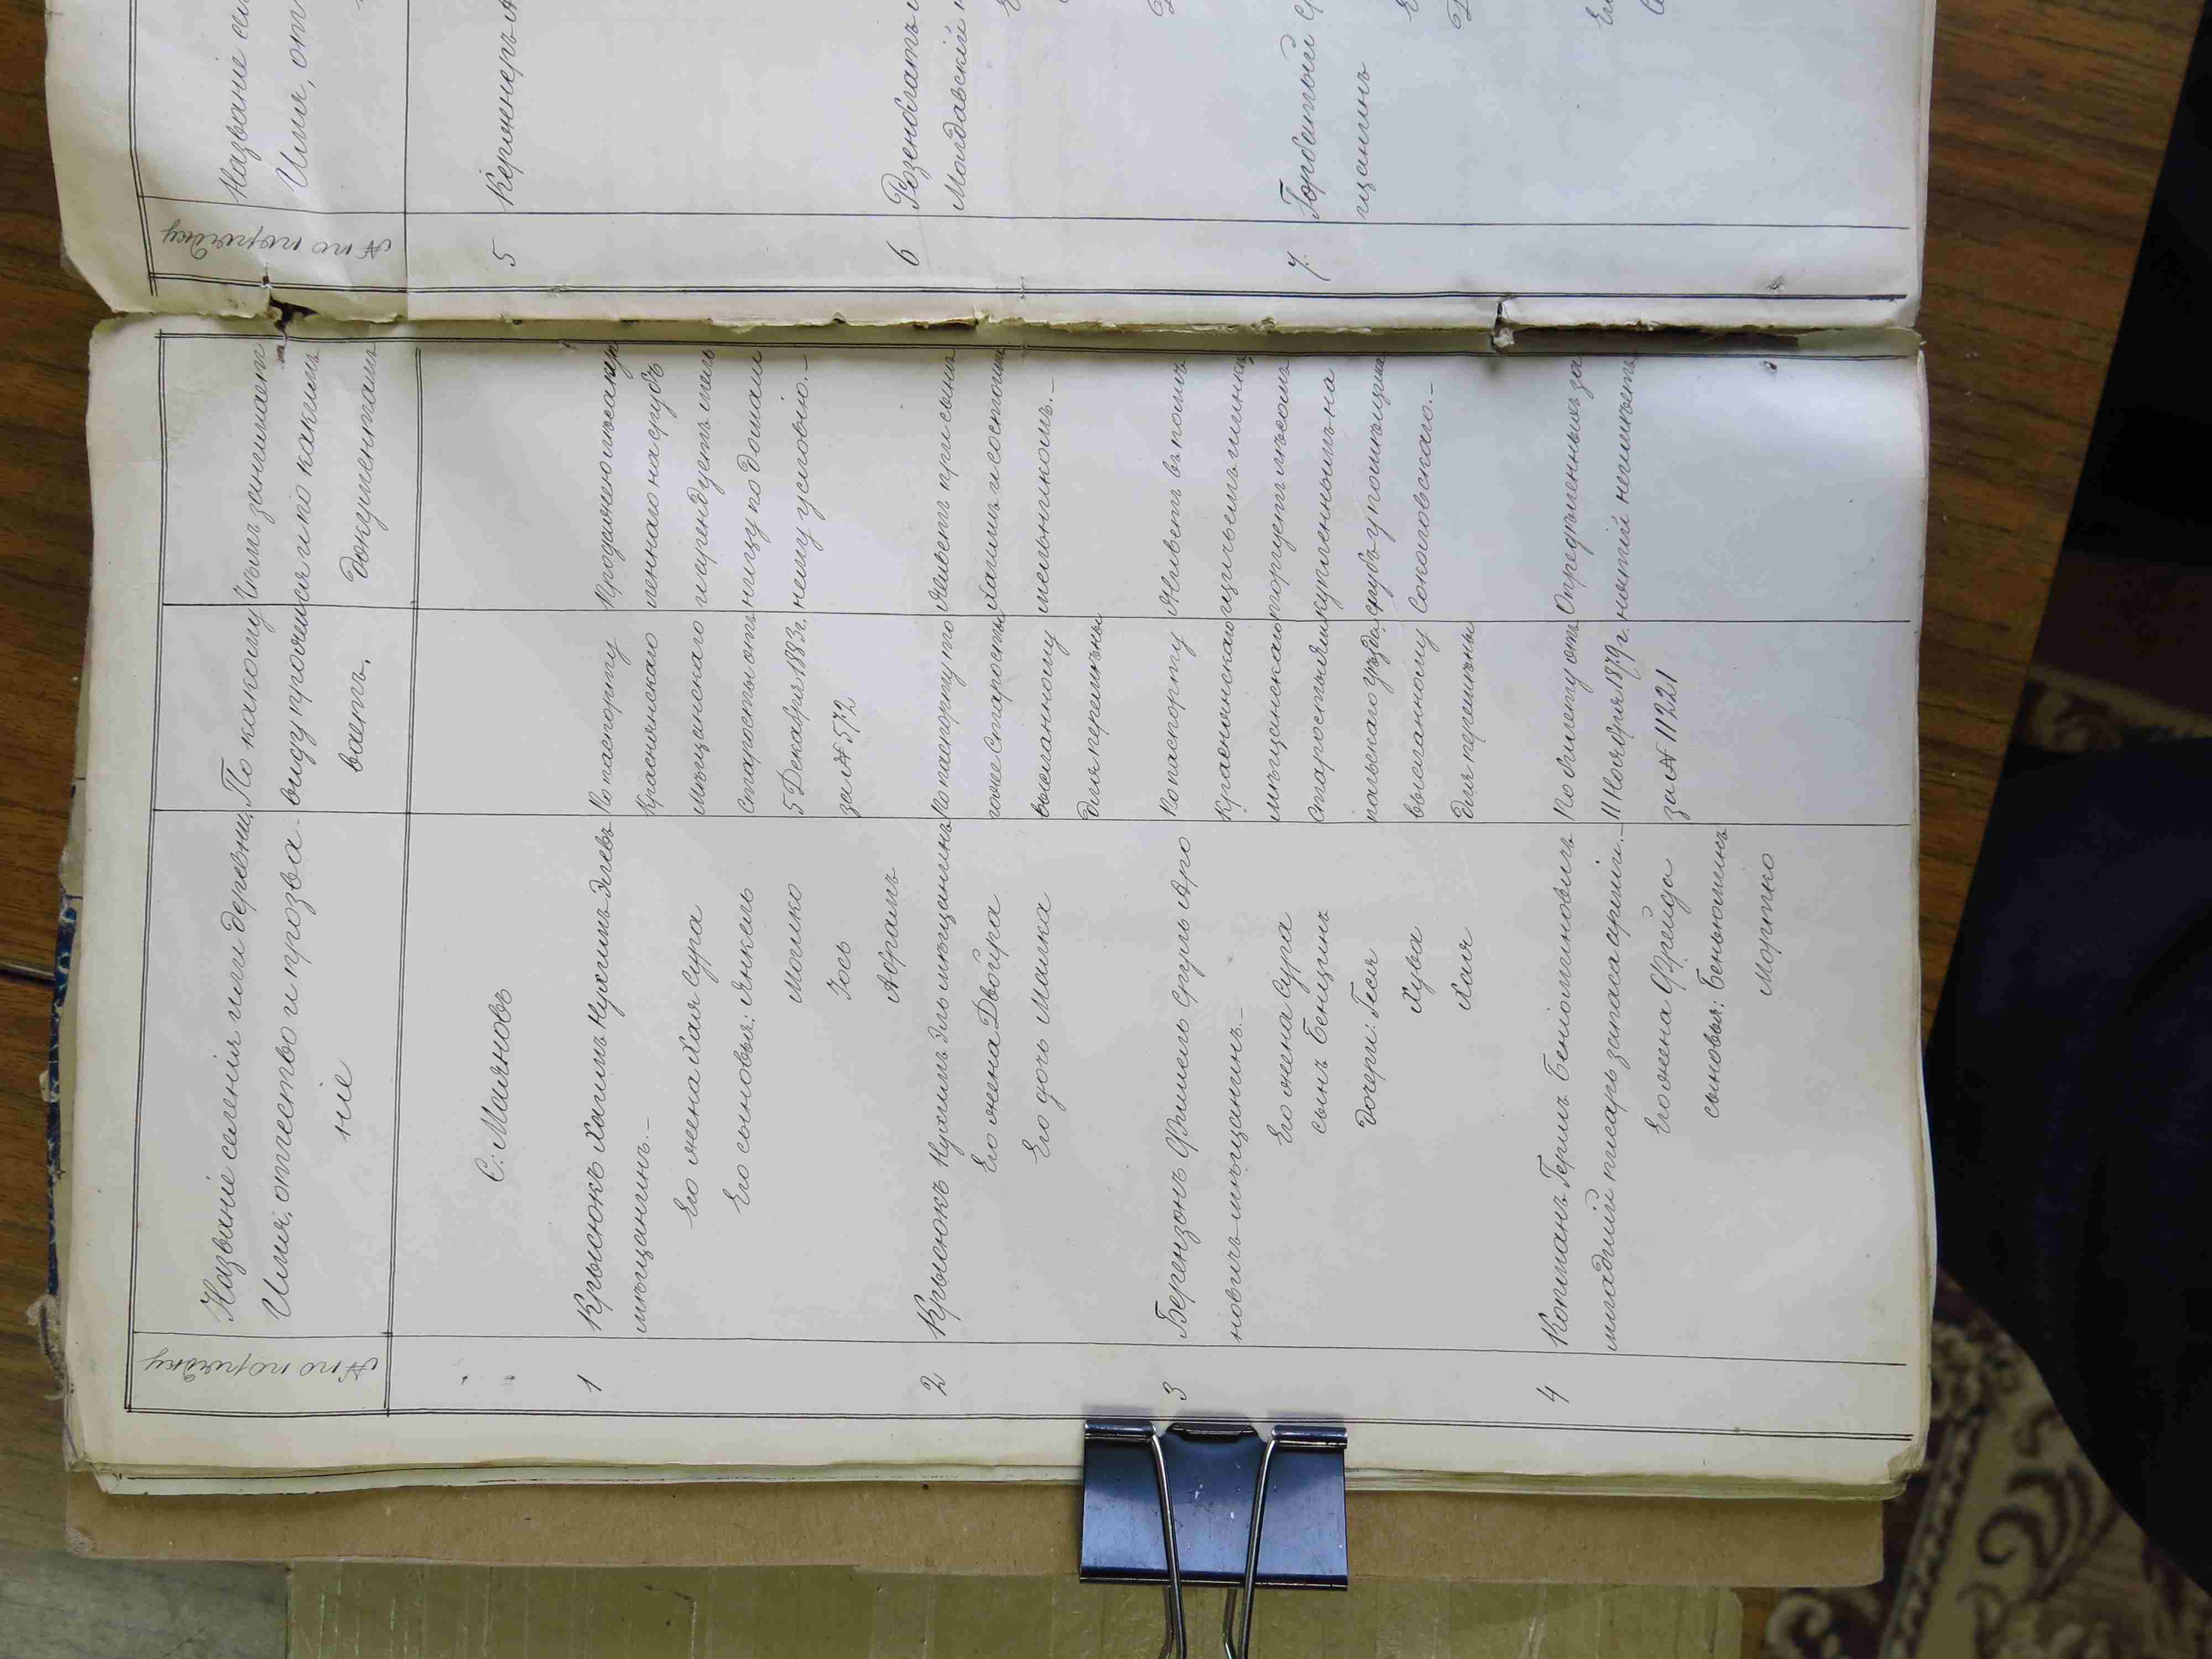 № по порядку
Названіе селенія или деревни,
Имя, отчество и прозва-
ніе
По какому
виду прожи-
ваетъ.
Чѣмъ занимает
ся и по какимъ
документамъ
С: Маяновъ
1
Крысюкъ Хаимъ Нухимъ-Элевъ
мѣщанинъ.-
Его жена Хая Сура
Его сыновья: Янкель
Мошко
Іось
Абрамъ
По паспорту
Краснянскаго
мѣщанскаго
Старосты отъ
5 Декабря 1883 г.
за № 572
Продажею лѣса куп
леннаго на срубъ
и арендуетъ мель
ницу по домаш
нему условію.-
2
Крысюкъ Нухимъ Эль мѣщанинъ
Его жена Двойра
Его дочь Малка
По паспорту то
гоже Старосты
высланному
для перемѣны
Живетъ при сынѣ
Хаимѣ и состоитъ
мельникомъ.-
3
Берензонъ Фишель Сруль Аро
новичъ мѣщанинъ.-
Его жена Сура
сынъ Бенцинъ
дочери: Геся
Хува
Хая
По паспорту
Краснянскаго
мѣщанскаго
Старосты Ям
польскаго уѣзда
высланному
для перемѣны
Живетъ въ помѣ
щичьемъ шинкѣ
торгуетъ лѣсомъ
купленнымъ на
срубъ у помѣщика
Соколовскаго.-
4
Копманъ Гершъ Беніоминовичъ
младшій писарь запаса арміи.-
Его жена Фрейда
сыновья: Беньюминъ
Мортко
По билету отъ
11 Ноября 1879 г.
за № 11221
Опредѣленныхъ за
нятій неимѣетъ
№ по порядку
Названіе се
Имя, от
5
Кержнеръ
6
Розенблатъ
Молдавскій
7.
Горбатый
щанинъ